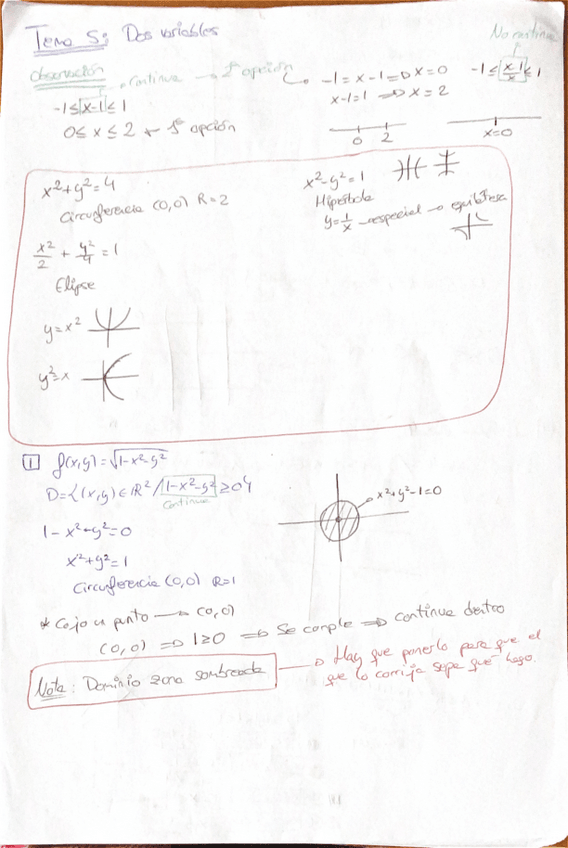 Tema 5: Dos variables
No continua
Observación
continua → 2ª opción
-1 = x-1 ⇒ x=0
x-1=1 ⇒ x=2
-1 ≤ |x-1| ≤ 1
0 ≤ x ≤ 2 ← 1ª opción
0 2
x=0
x²+y²=4
Circunferencia (0,0) R=2
x²/2 + y²/4 = 1
Elipse
y=x²
y²=x
x²-y²=1
Hipérbola
y=1/x → especial → equilátera
1 f(x,y)=√1-x²-y²
D={(x,y)∈ℝ²/1-x²-y²≥0}
continua
1-x²-y²=0
x²+y²=1
Circunferencia (0,0) R=1
x²+y²-1=0
* Cojo un punto → (0,0)
(0,0) ⇒ 1≥0 ⇒ Se cumple ⇒ continua dentro
Nota: Dominio zona sombreada
→ Hay que ponerlo para que el
que lo corrija sepa qué hago.